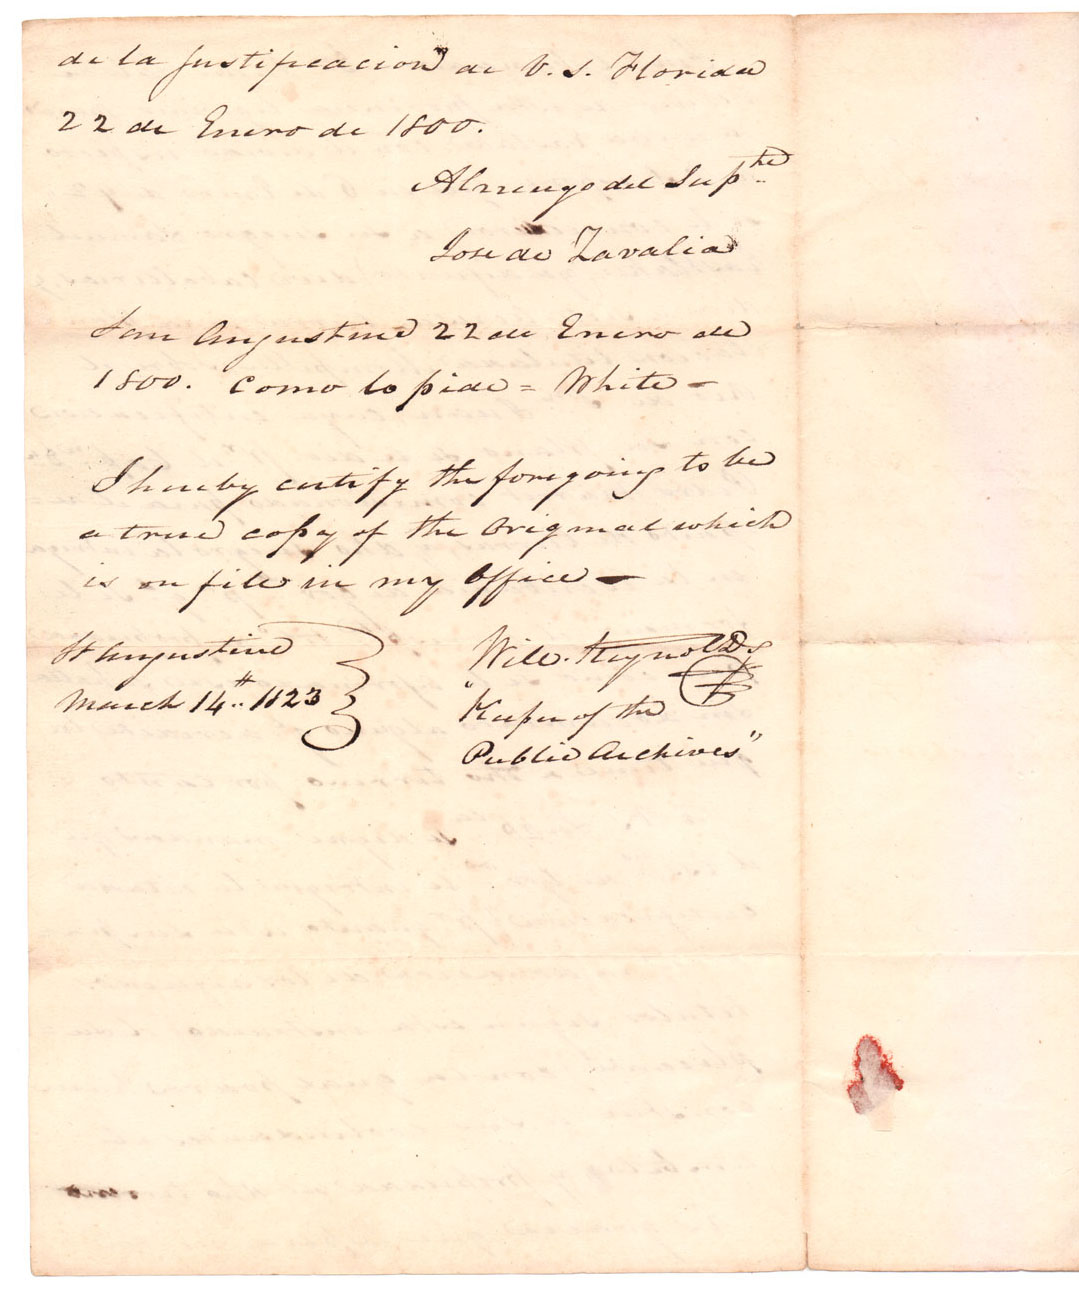 de la Justificacion de V. S. Florida
22 de Enero de 1800.
Al ruego del Sup.te
Jose de Zavalia
San Augustine 22 de Enero de
1800. Como lo pide = White –
I hereby certify the foregoing to be
a true copy of the Original which
is on file in my Office –
St Augustine
March 14th 1823
Will. Reynolds
"Keeper of the
Public Archives"